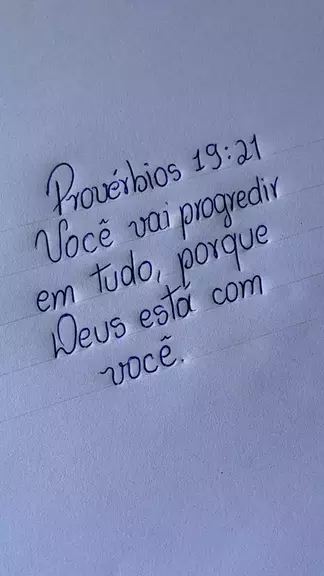 Provérbios 19:21
Você vai progredir
em tudo, porque
Deus está com
você.